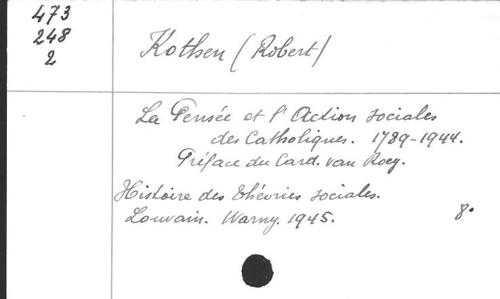 473
248
2
Kothen (Robert)
La Pensée et l'Action sociales
des Catholiques. 1789-1944.
Préface du Card. van Roey.
Histoire des théories sociales.
Louvain. Warny. 1945. 8°